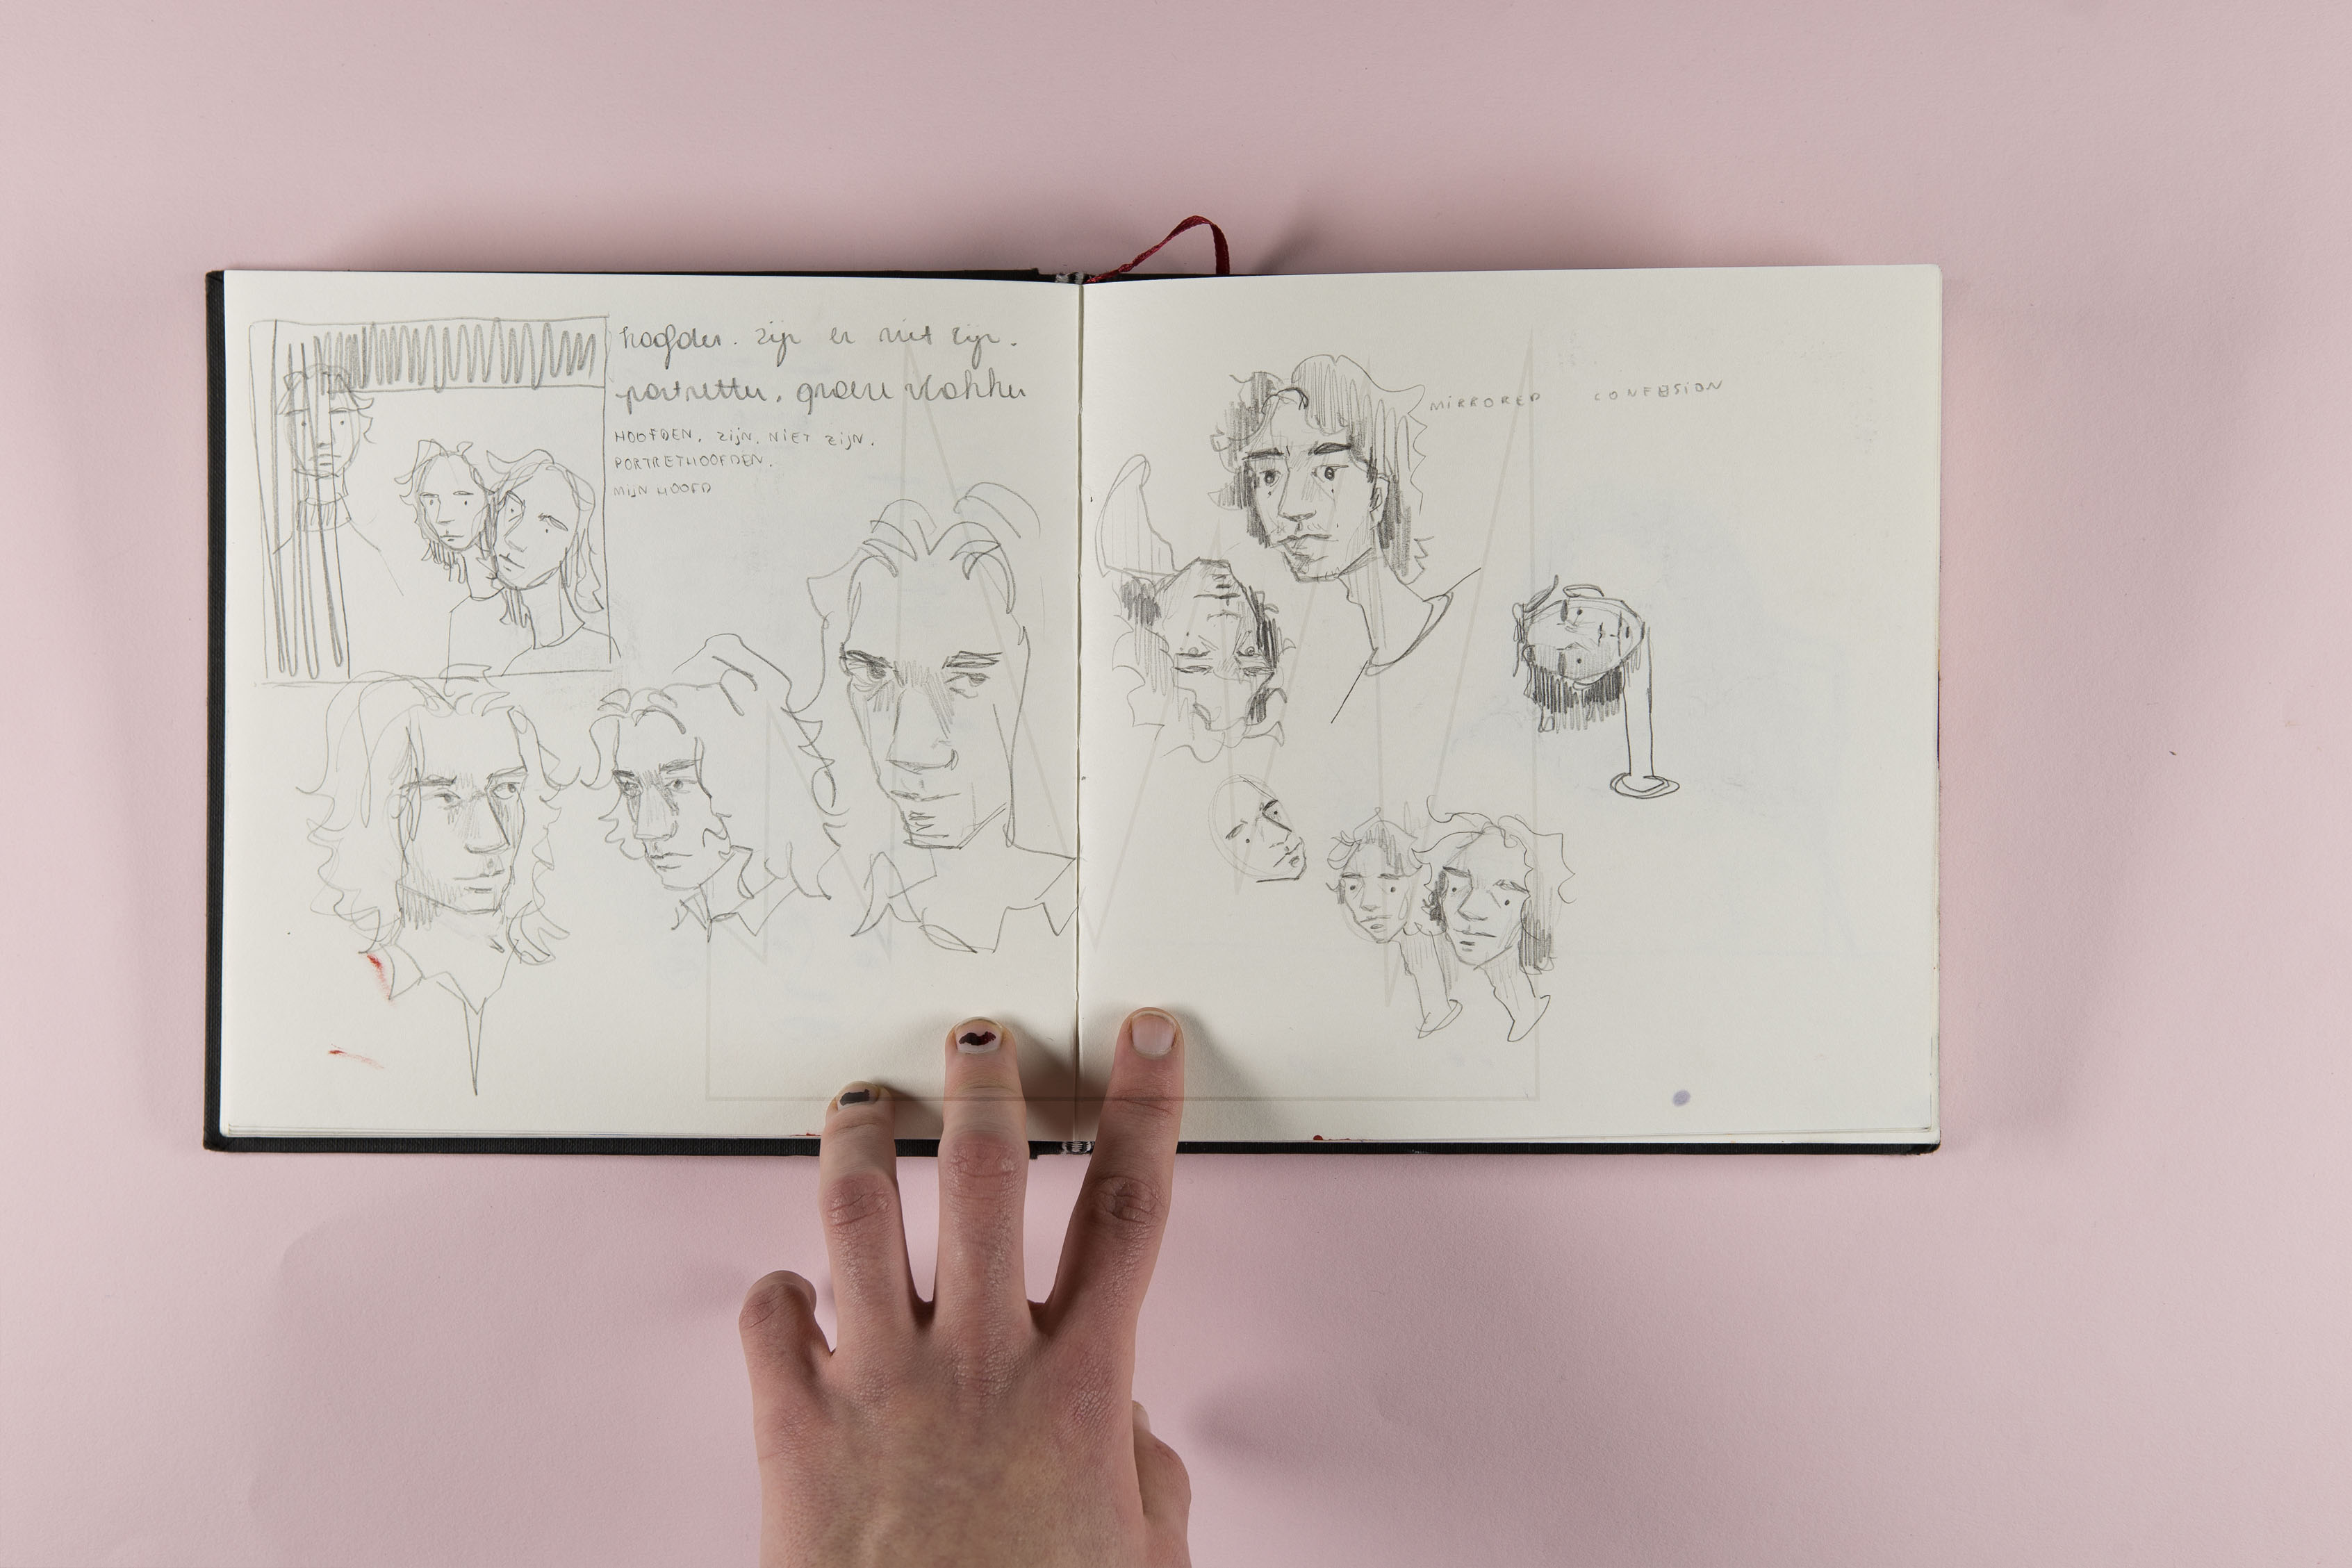 hoofden. zijn en niet zijn.
portretten, groene vlakken
HOOFDEN, ZIJN, NIET ZIJN.
PORTRETHOOFDEN.
MIJN HOOFD
MIRRORED CONFUSION